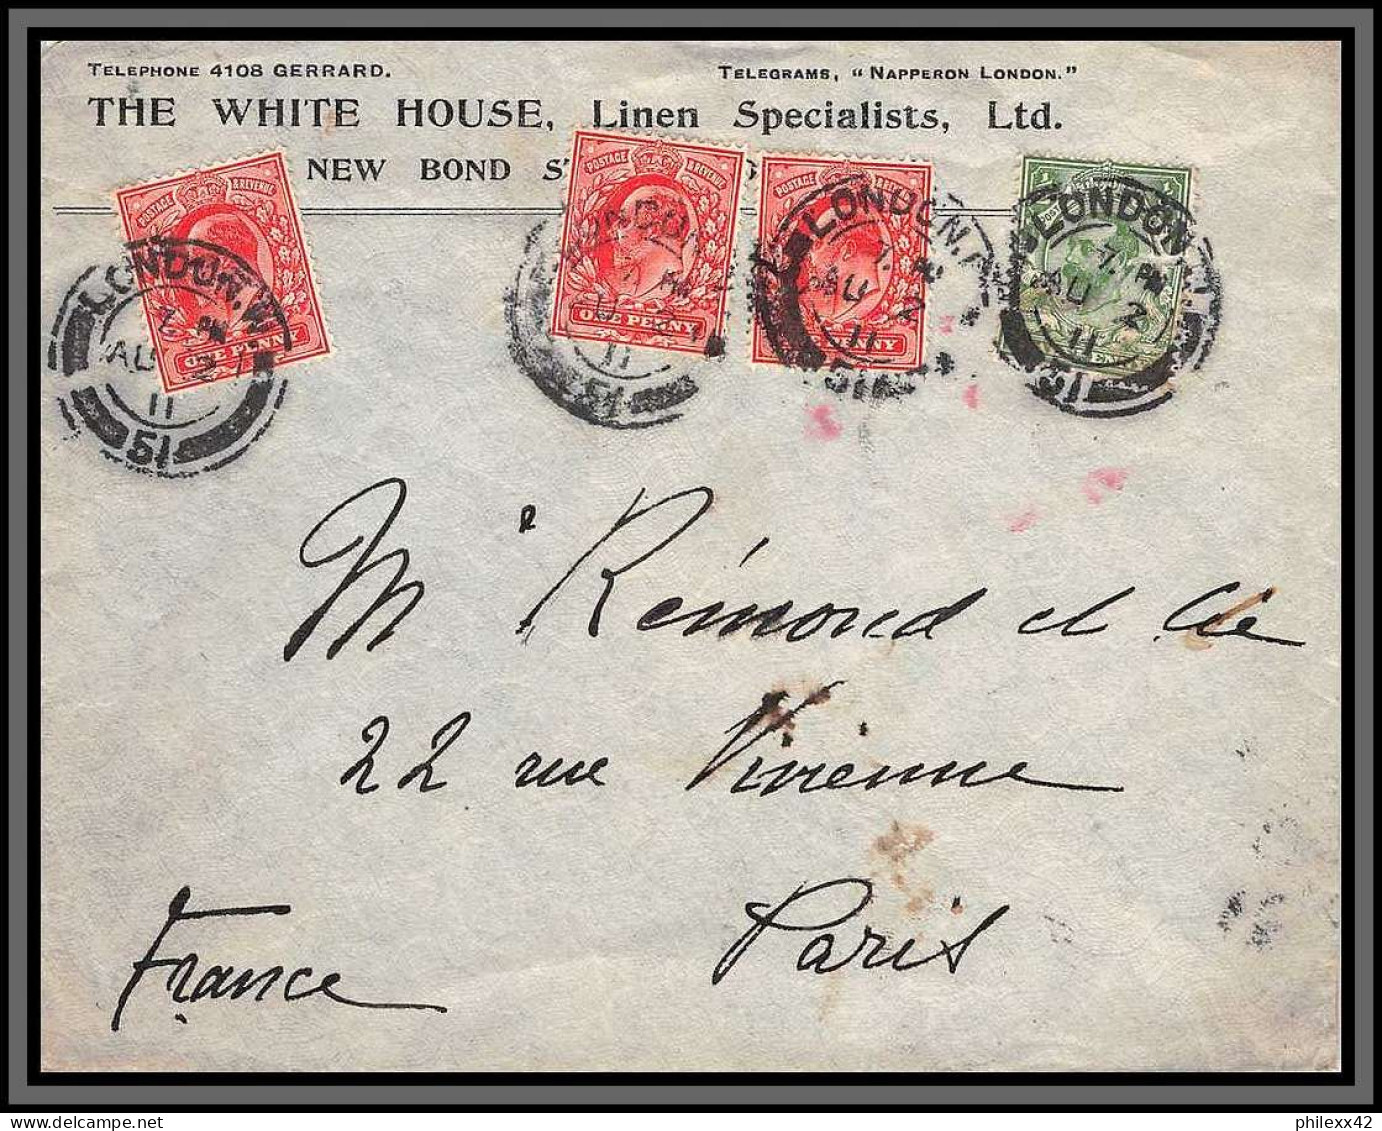 TELEPHONE 4108 GERRARD. TELEGRAMS, "NAPPERON LONDON."
THE WHITE HOUSE, Linen Specialists, Ltd.
NEW BOND
POSTAGE & REVENUE
ONE PENNY
LONDON.W
7. PM
AU 2
11
51
POSTAGE & REVENUE
ONE PENNY
7 PM
AU 2
11
51
POSTAGE
PENNY
LONDON.W
7. PM
AU 2
11
51
1 1
LONDON.W
7. PM
AU 2
11
51
Mr Rémond et Cie
22 rue Vivienne
Paris
France
philexx42